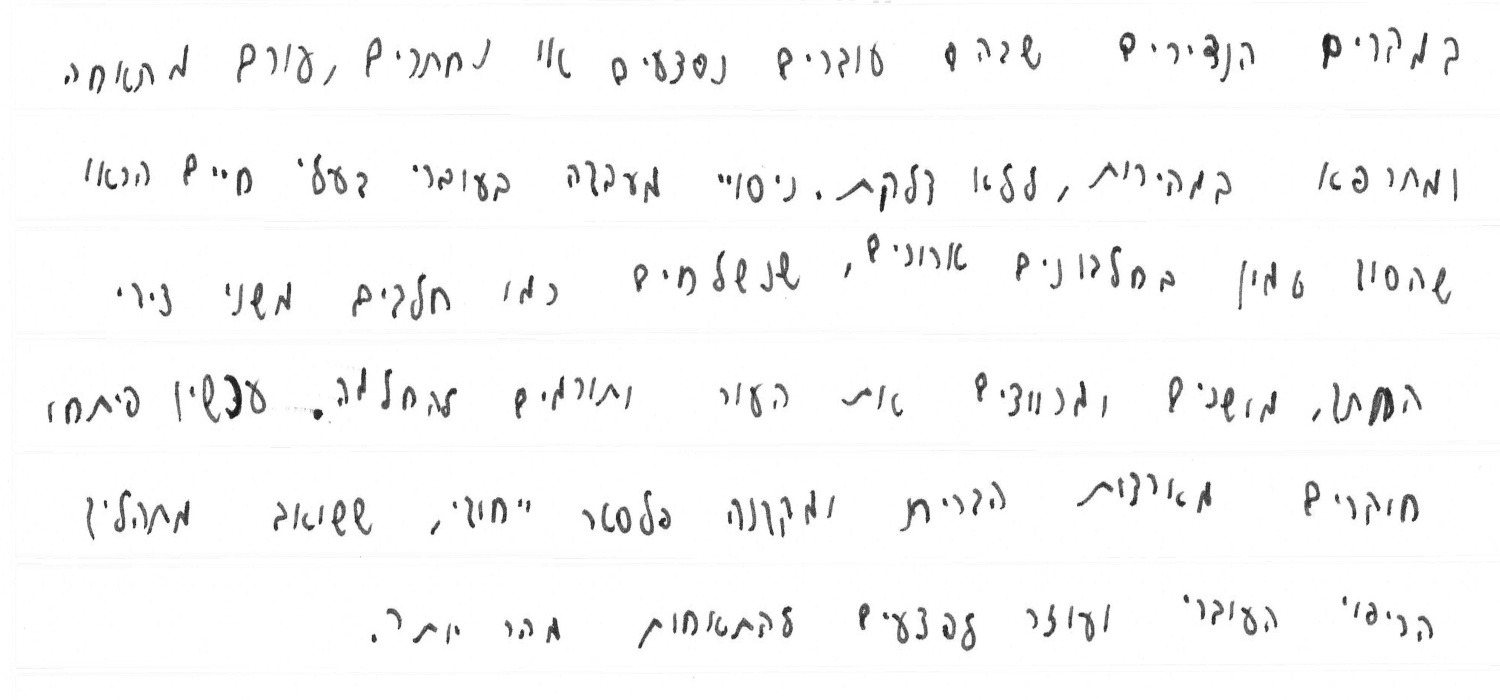 במקרים הנדירים שבהם עוברים נפצעים או נחתכים, עורם מתאחה
ומתרפא במהירות, ללא דלקת. ניסויי מעבדה בעוברי בעלי חיים הראו
שהסוד טמון בחלבונים ארוכים, שנשלחים כמו חלבים משני צידי
החתך, מושכים ומכווצים את העור ותורמים להחלמה. עכשיו פיתחו
חוקרים מארצות הברית ומקנדה פלסטר ייחודי, ששואב מתהליך
הריפוי העוברי ועוזר לפצעים להתאחות מהר יותר.